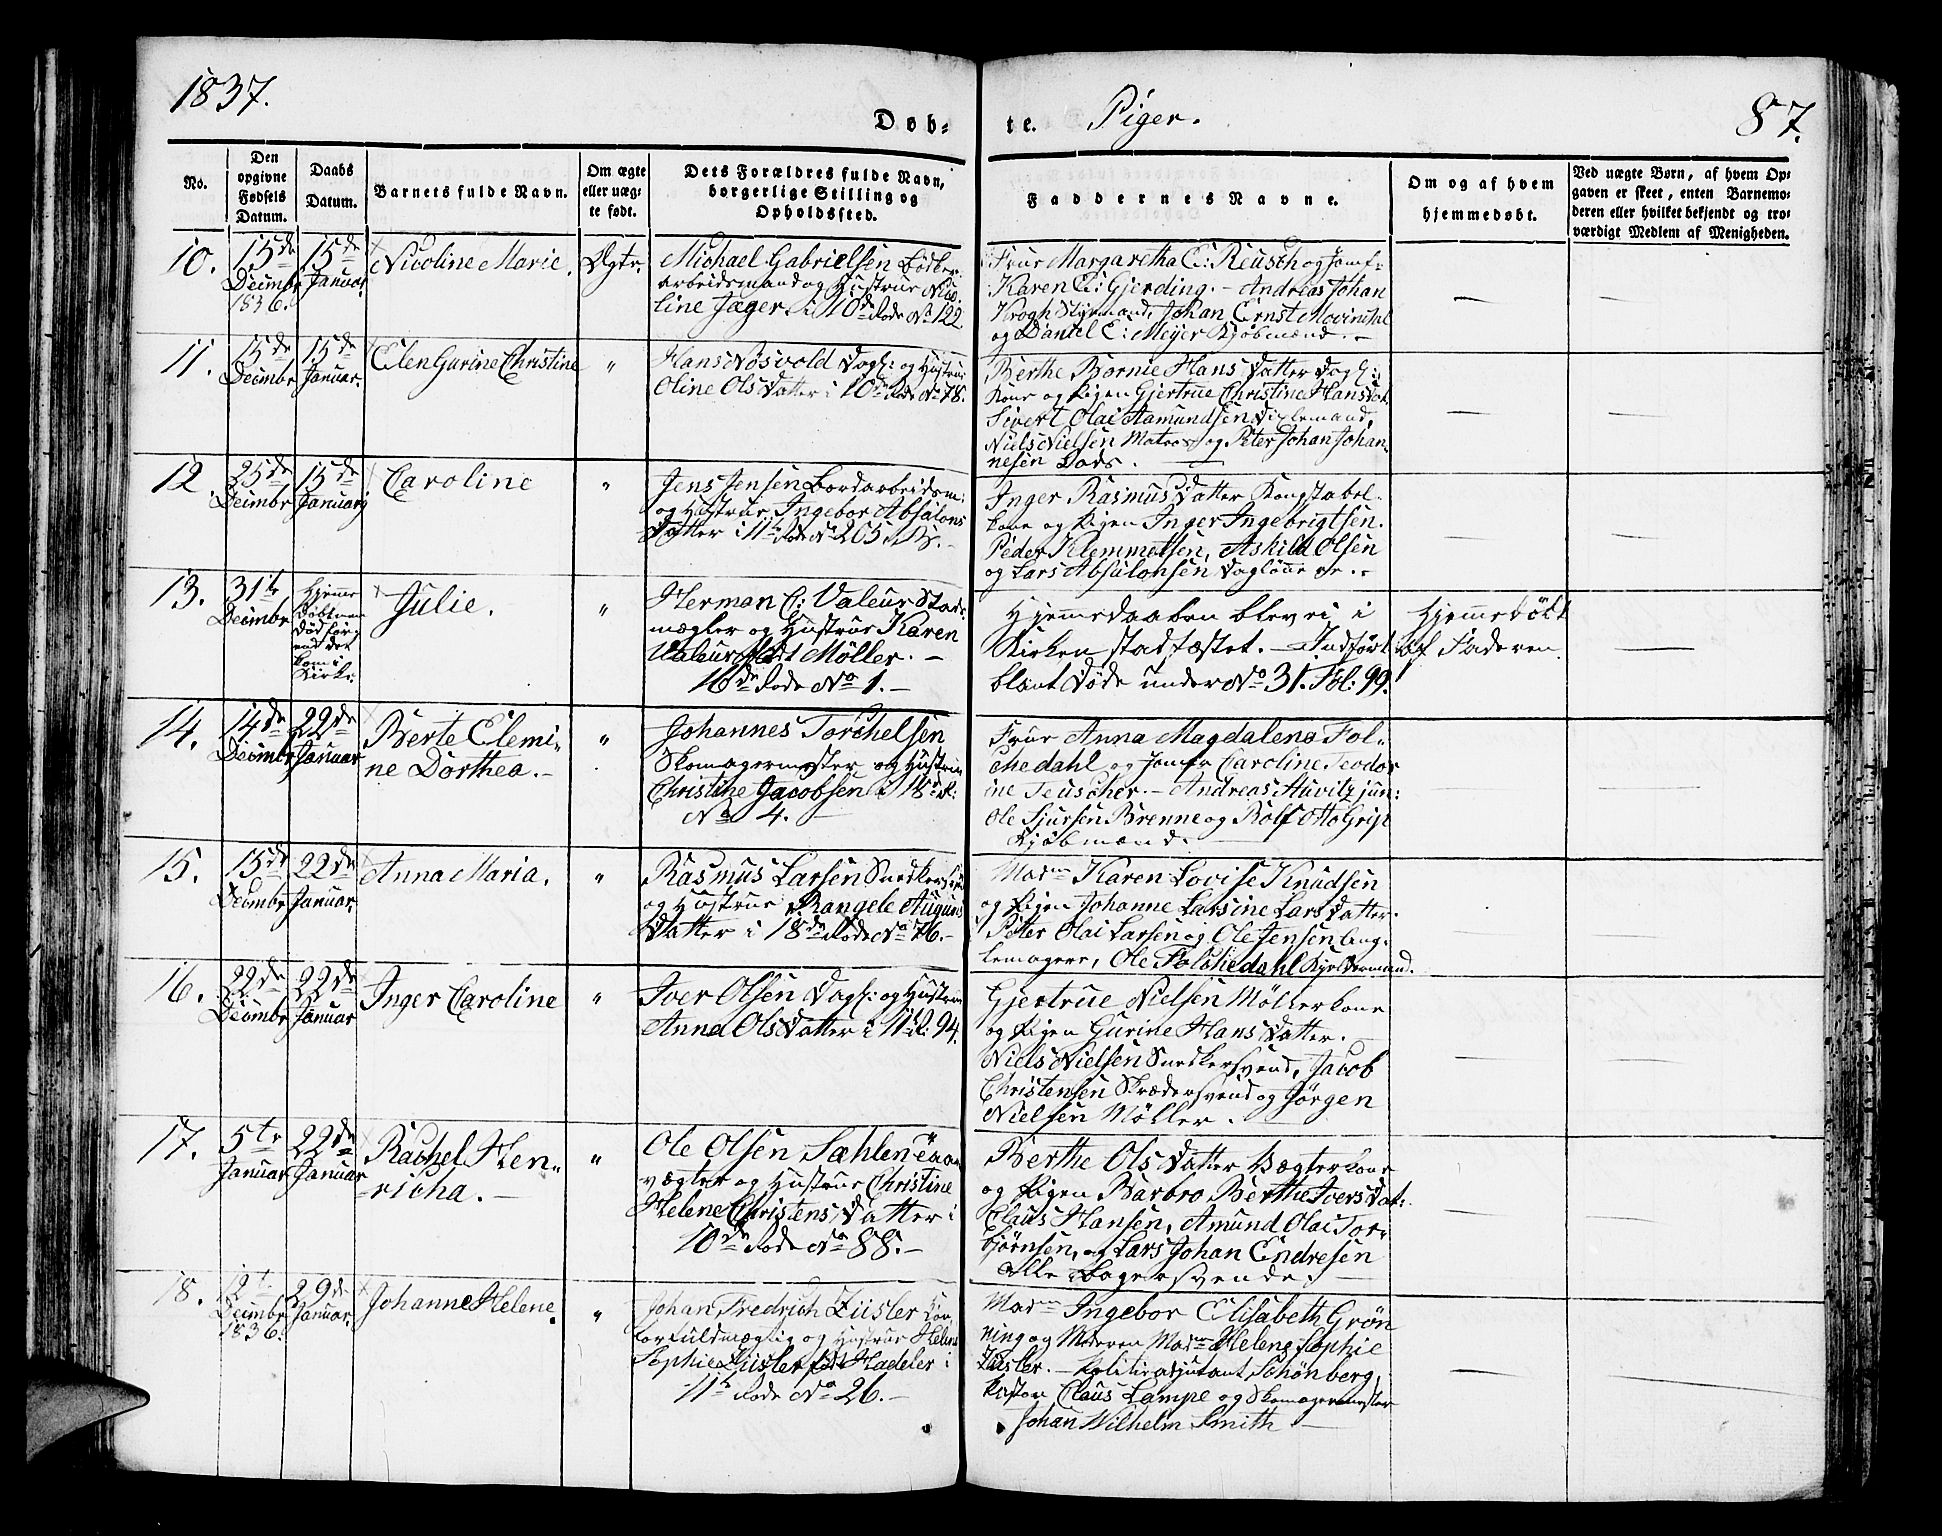 1837.
Döb-
te.
Piger.
87.
No.
Den opgivne Fødsels Datum.
Daabs Datum.
Barnets fulde Navn.
Om ægte eller uæg-
te født.
Dets Forældres fulde Navn,
borgerlige Stilling og
Opholdssted.
Faddernes Navne.
Om og af hvem
hjemmedøbt.
Ved uægte Børn, af hvem Op-
gaven er skeet, enten Barnemo-
deren eller hvilket bekjendt og tro-
værdigt Medlem af Menigheden.
10.
15de
Decembr
1836.
15de
Januar.
Nicoline Marie.
Ægte.
Michael Gabrielsen
arbeidsmand og Hustrue Nico-
line Jæger i 10de Rode No 122
Frue Margaretha C: Reusch og Jomf:
Karen E: Gjerding. - Andreas Johan
Krogh Styrmand, Johan Ernst Mowinckel
og Daniel C: Meyer Kjøbmænd. -
11.
15de
Decembr
15de
Januar.
Elen Gurine Christine
"
Hans Røsvold Dagl: og Hustrue
Oline Ols Datter i 10de Rode No 78.
Berthe Bornie Hans Datter Dagl:
kone og Pigen Gjertrue Christine Hansdat.
Sivert Olai Aamundsen
Niels Nielsen Matros og Peter Johan Johan-
nesen Dads.
12.
25de
Decembr
15de
Januar
Caroline
"
Jens Jensen Bordarbeidsm:
og Hustrue Ingebor Absalons
Datter i 11te Rode No 205.
Inger Rasmus Datter Konstabel-
kone og Pigen Inger Ingebrigtsen.
Peder Klemmetsen, Askild Olsen
og Lars Absalonsen Daglønnere. -
13.
31te
Decembr
Hjemme
døbt men
død førg
end det
kom i
Kirke:
Julie.
"
Herman C: Valeur Stads-
mægler og Hustrue Karen
Valeur født Møller. -
16de Rode No 1. -
Hjemmedaaben blev ei i
Kirken stadfæstet. - Indført
blant Døde under No 31. Fol: 99.
Hjemmedøbt
af Faderen.
14.
14de
Decembr
22de
Januar
Berte Clemi-
ne Dorthea. -
"
Johannes Torchelsen
Skomagermester og Hustrue
Christine Jacobsen i 18de R:
No 4. -
Frue Anna Magdalena Fol-
chedahl og Jomfr Caroline Teodor
ine Teuscher. - Andreas Huvitz jun:
Ole Sjursen Brenne og Rolf Otto Grip
Kjøbmænd.
15.
15de
Decembr
22de
Januar.
Anna Maria.
"
Rasmus Larsen Snedkersv:
og Hustrue Rangele Auguns
Datter i 18de Rode No 76. -
Madme Karen Lovise Knudsen
og Pigen Johanne Larsine Lars Datter.
Peter Olai Larsen og Ole Jensen
Ole Folchedahl
16.
22de
Decembr
22de
Januar
Inger Caroline
"
Iver Olsen Dagl: og Hustrue
Anna Ols Datter i 11te R: 94.
Gjertrue Nielsen Møllerkone
og Pigen Gurine Hans Datter.
Niels Nielsen Snedkersvend, Jacob
Christensen Skrædersvend og Jørgen
Nielsen Møller.
17.
5te
Januar
22de
Januar
Rachel Hen-
richa. -
"
Ole Olsen Sæhlen
vægter og Hustrue Christine
Helene Christens Datter i
10de Rode No 88. -
Berthe Ols Datter Vægterkone
og Pigen Barbro Berthe Ivers Dat:
Claus Hansen, Amund Olai Tor-
bjørnsen, og Lars Johan Endresen
Alle Bagersvende. -
18.
12te
Decembr
1836.
29de
Januar.
Johanne Helene.
"
Johan Fredrich Züsler
forfuldmægtig og Hustrue Helene
Sophie Züsler født Hadeler i
11te Rode No 26. -
Madme Ingebor Elisabeth Grøn
ning og Moderen Madme Helene Sophie
Züsler. - Politiadjutant Schønberg,
Claus Lampe og Skomagermester
Johan Wilhelm Smith -